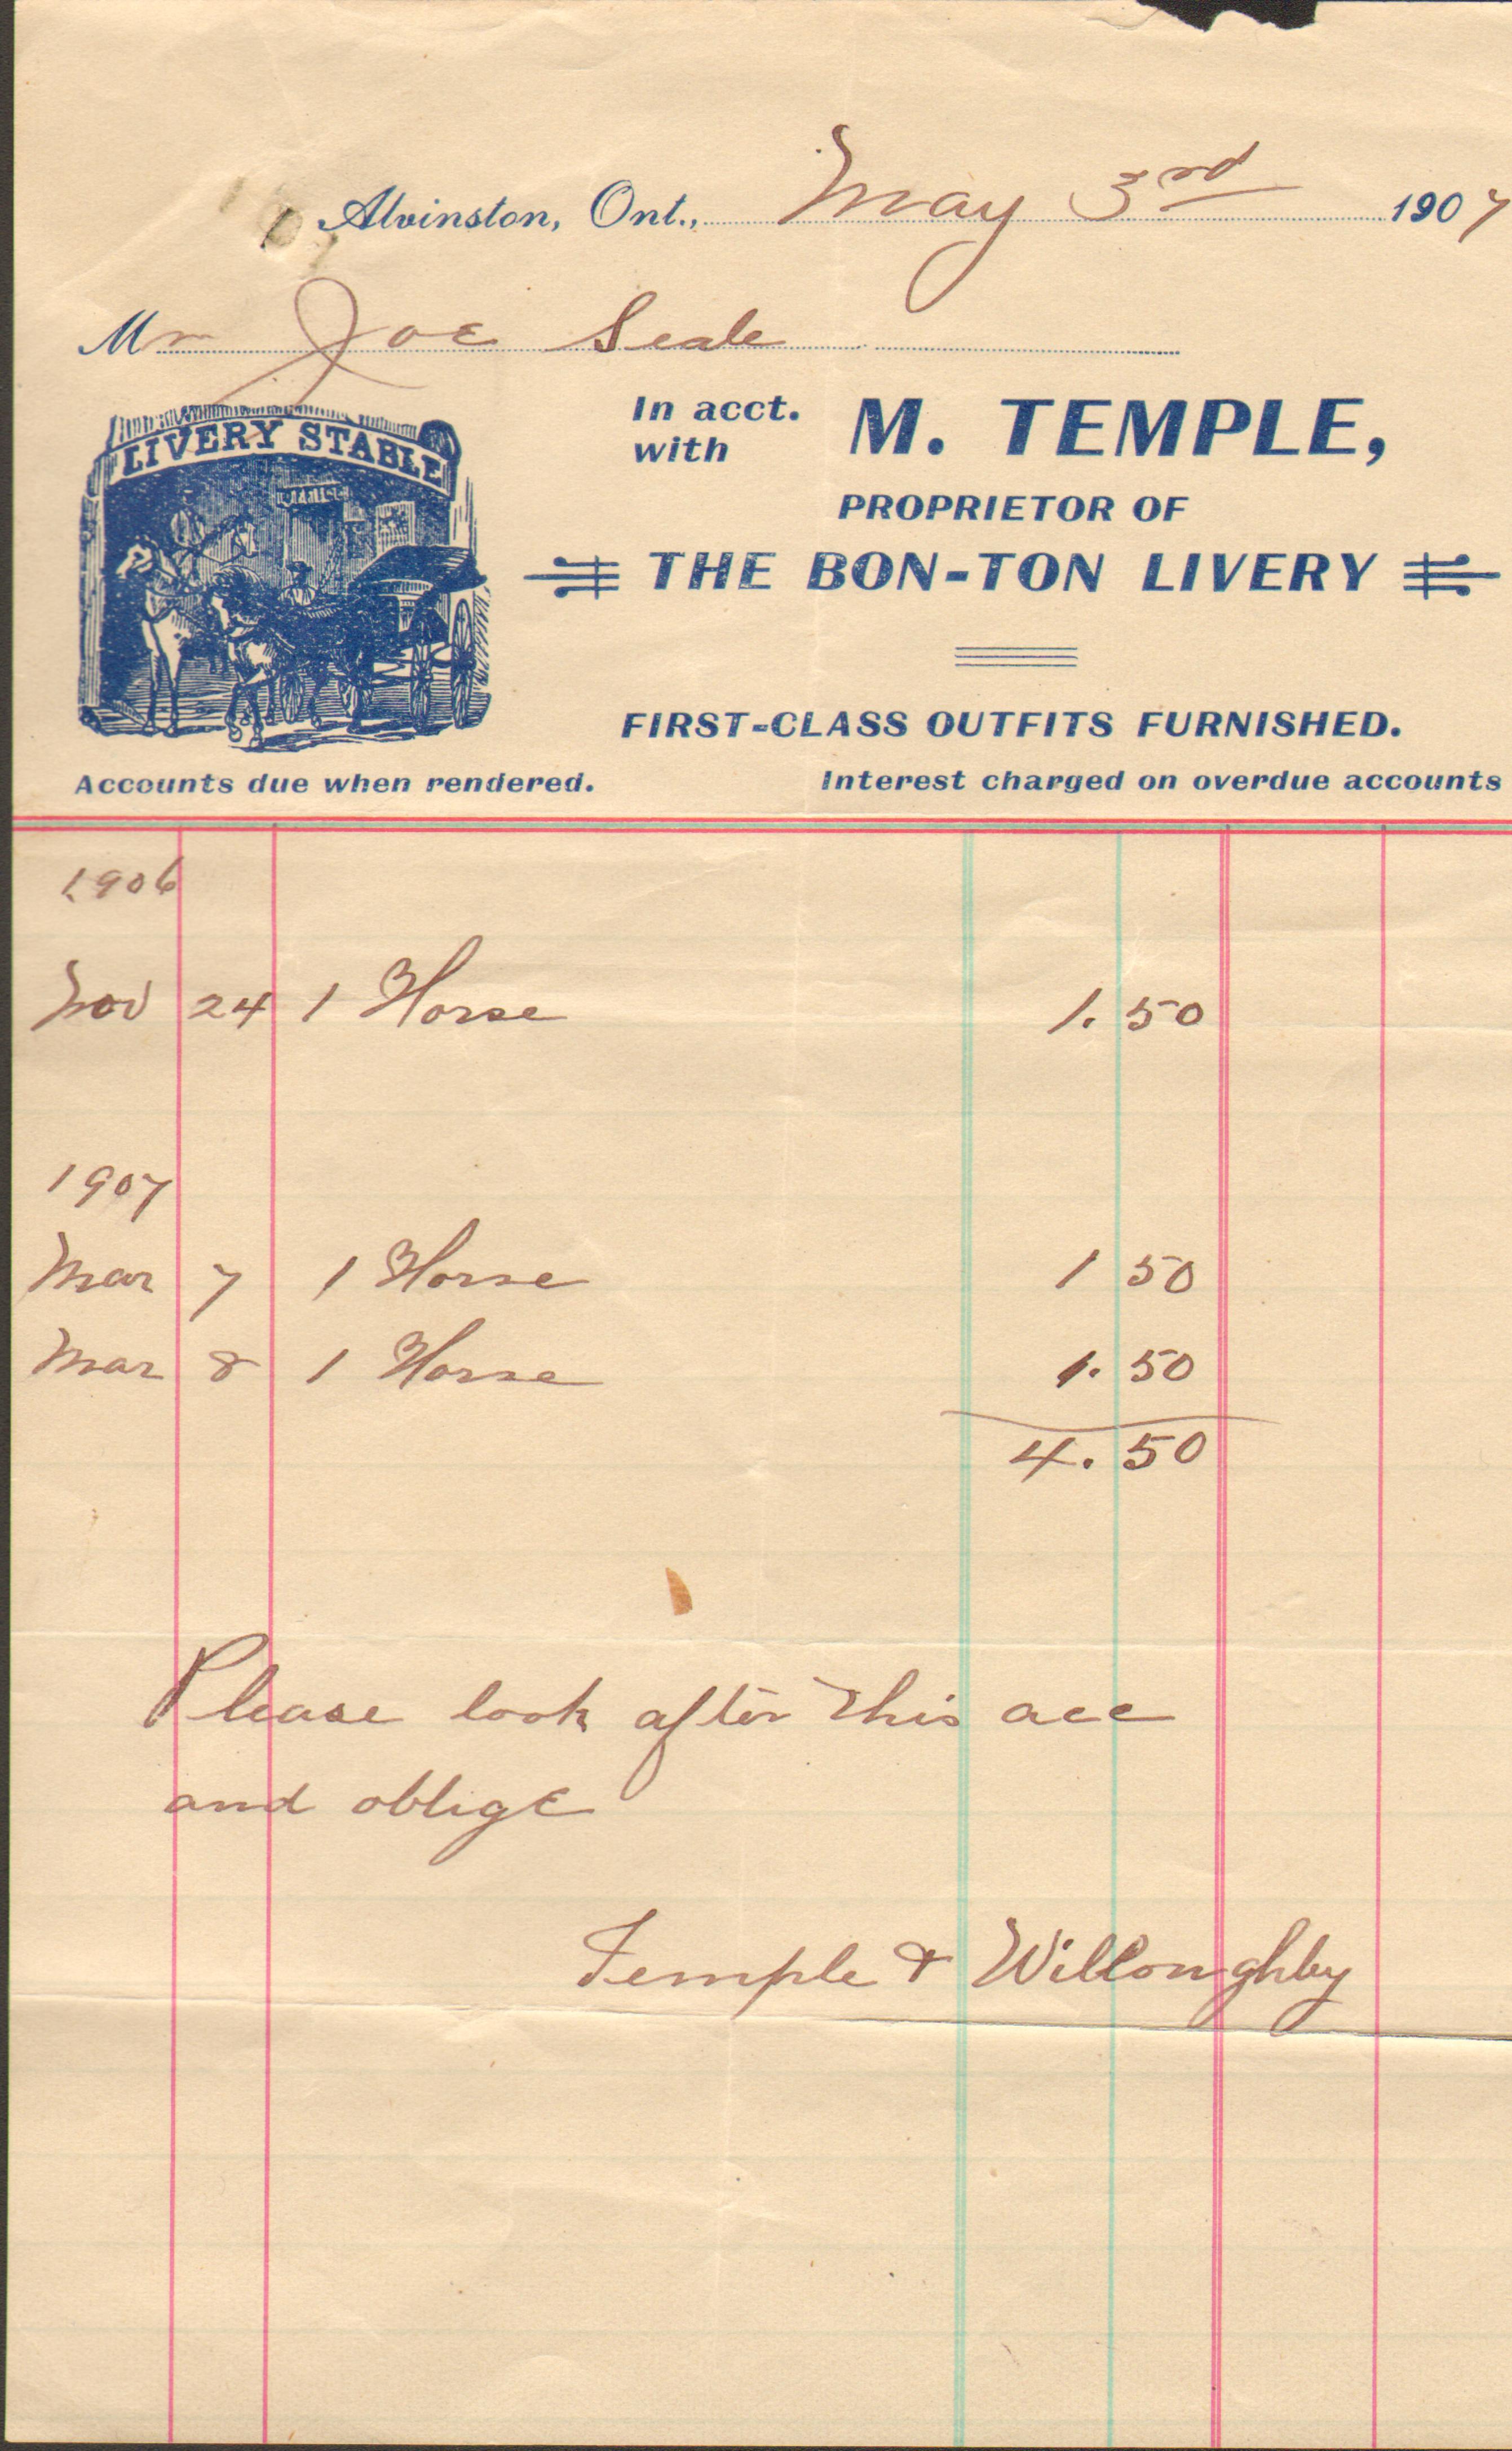 Alvinston, Ont., May 3rd 1907
Mr Joe Seale
LIVERY STABLE
In acct. with M. TEMPLE,
PROPRIETOR OF
THE BON-TON LIVERY
FIRST-CLASS OUTFITS FURNISHED.
Accounts due when rendered. Interest charged on overdue accounts
1906
Nov 24 1 Horse 1.50
1907
Mar 7 1 Horse 1 50
Mar 8 1 Horse 1.50
4.50
Please look after this acc
and oblige
Temple & Willoughby